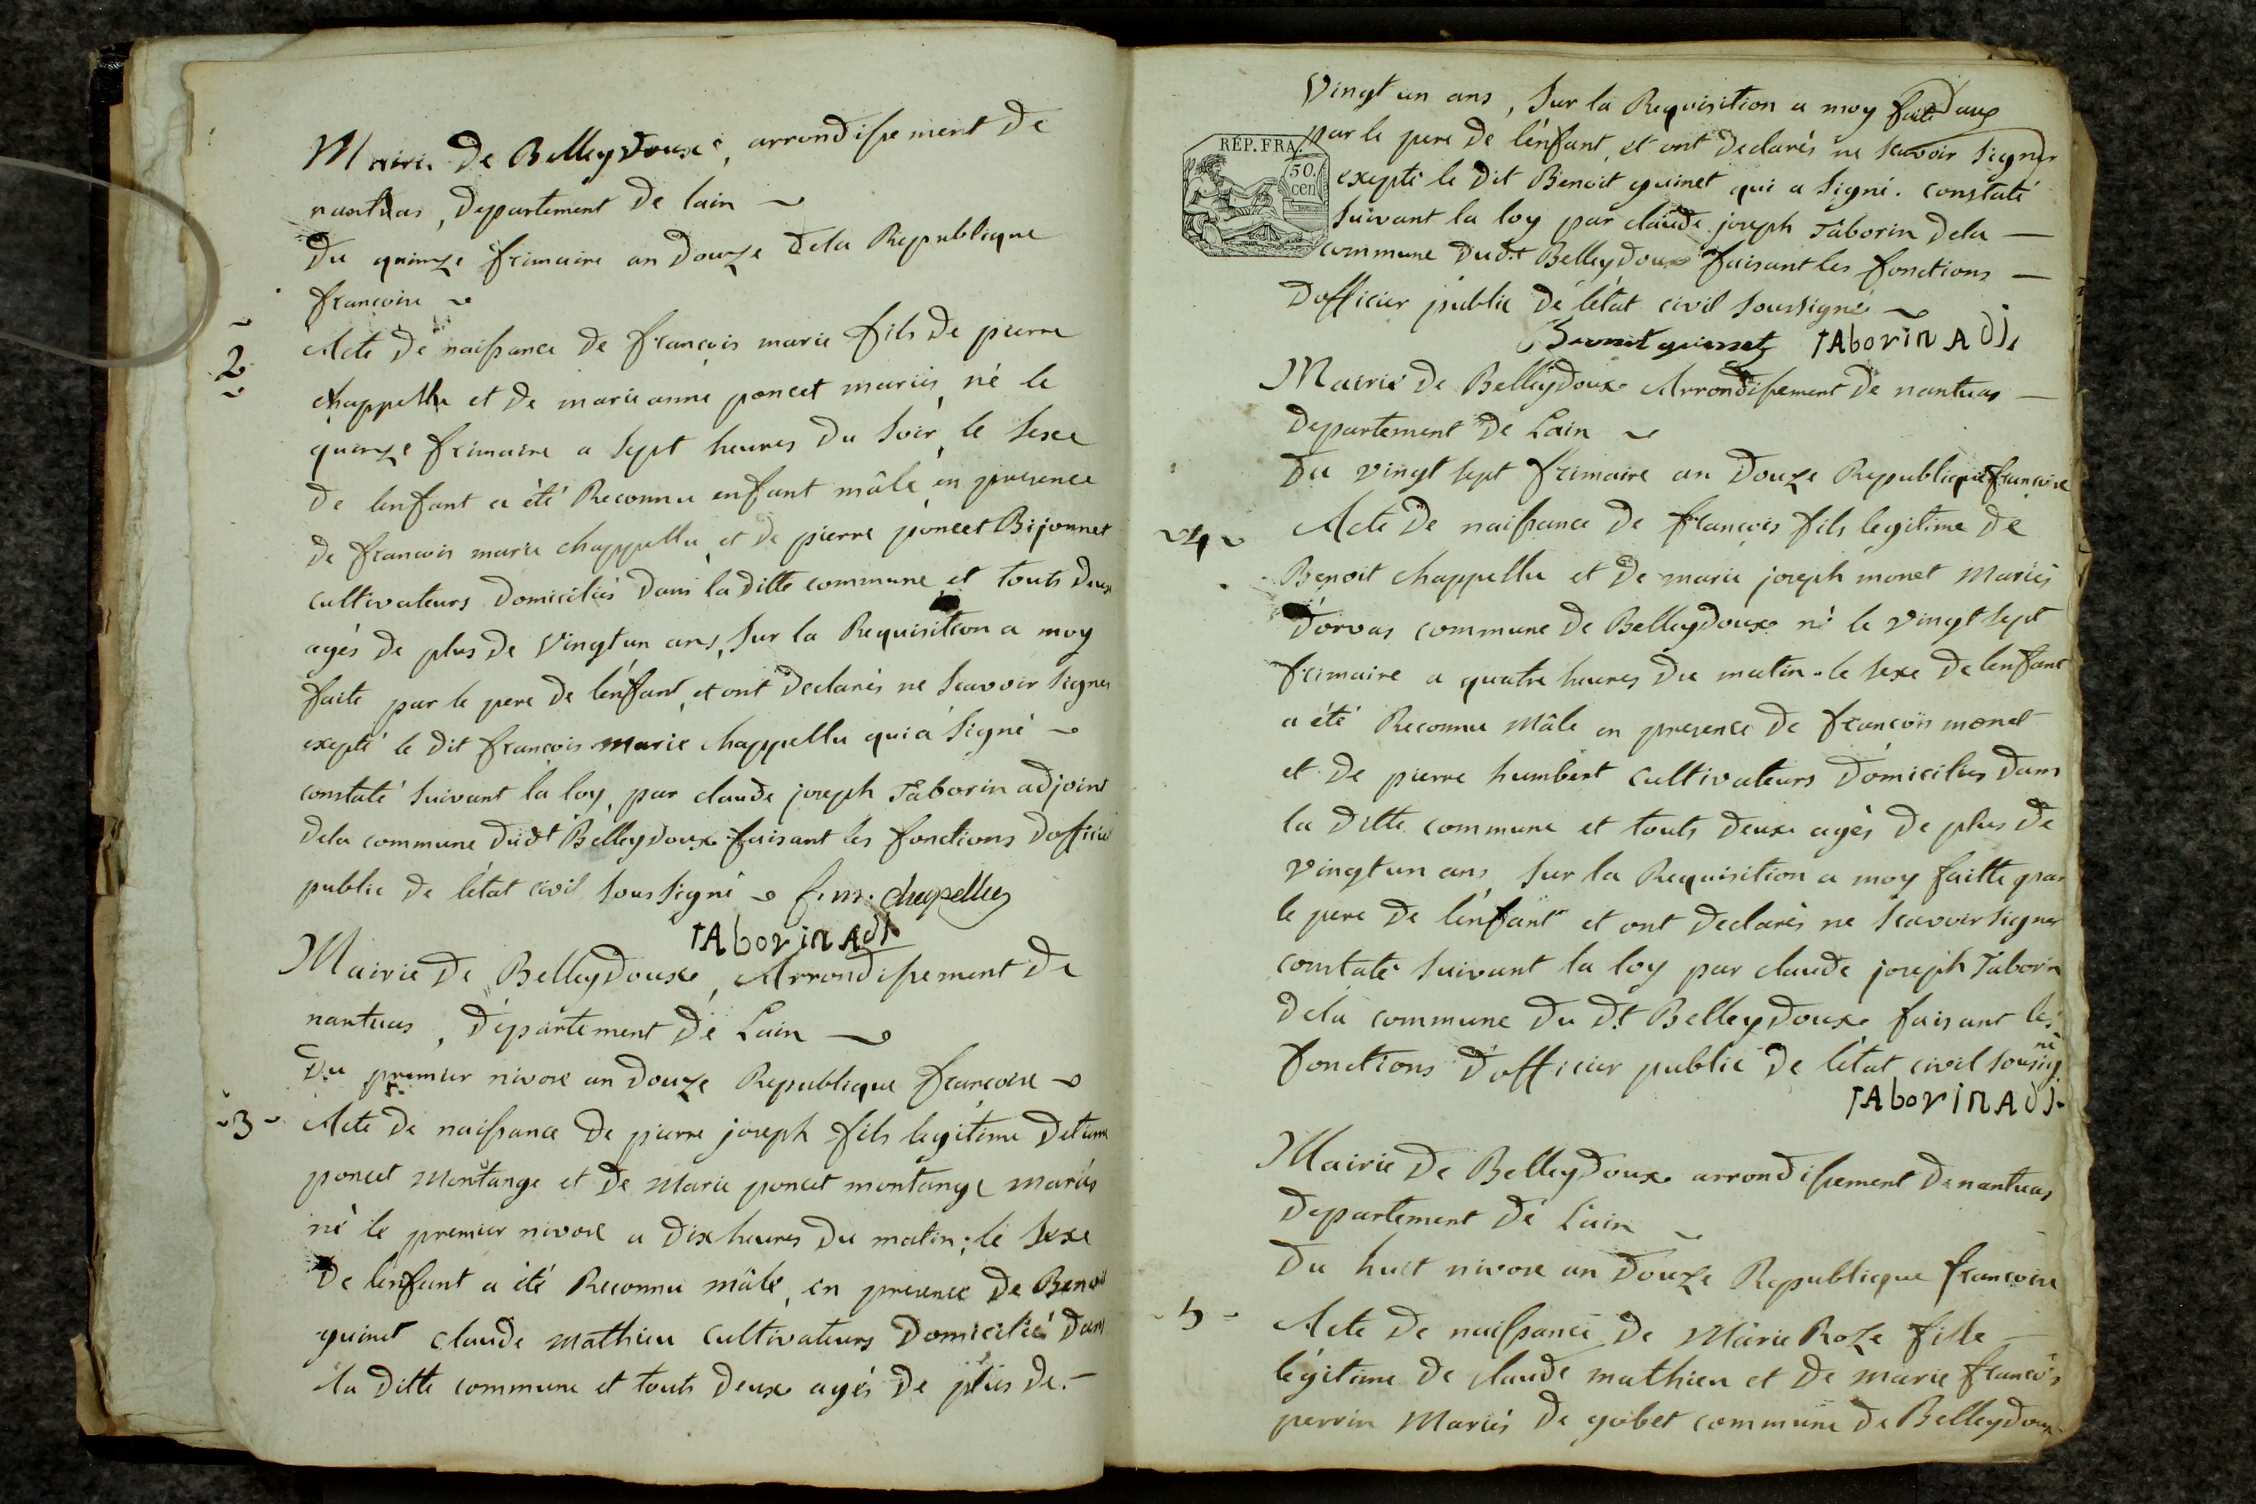 Mairie de Belleydoux, arrondissement de
nantuas, Departement de lain
Du quinze frimaire an Douze dela Republique
francoise
2
Acte de naissance de francois marie fils de pierre
chappellu et de marie anne poncet mariés, né le
quinze frimaire a sept heures du soir, le sexe
de lenfant a été Reconnu enfant mâle, en presence
de francois marie chappellu, et de pierre poncet Bijonnet
cultivateurs domiciliés dans la ditte commune, et touts deux
agés de plus de vingt un ans, sur la Requisition a moy
faite par le pere de lenfant, et ont declarés ne scavoir signer
excpté le dit francois marie chappellu qui a signé
constaté suivant la loy, par claude joseph Taborin adjoint
dela commune dudt Belleydoux faisant les fonctions dofficier
public de létat civil soussigné f. m. chapelluz
TAborin Adj.
Mairie de Belleydoux, Arrondissement de
nantuas, département de Lain
Du premier nivose an douze Republique francoise
3
Acte de naissance de pierre joseph fils legitime
poncet montange et de Marie poncet montange mariés
né le premier nivose a dix heures du matin; le sexe
de lenfant a été Reconnu mâle, en presence de Benoit
guinet claude mathieu cultivateurs domiciliés dans
la ditte commune et touts deux agés de plus de
vingt un ans, sur la Requisition a moy faite
par le pere de lenfant, et ont declarés ne scavoir signer
RÉP. FRA.
50. cen
excpté le dit Benoit guinet qui a signé. constaté
suivant la loy par claude joseph Taborin dela
commune dudt Belleydoux faisant les fonctions
dofficier public de létat civil soussigné
Benoit guinet TAborin Adj.
Mairie de Belleydoux Arrondissement de nantuas
departement de Lain
Du vingt sept frimaire an douze Republique francoise
4
Acte de naissance de francois fils legitime de
Benoit chappellu et de marie joseph monet Mariés
dorvas commune de Belleydoux né le vingt sept
frimaire a quatre heures du matin. le sexe de lenfant
a été Reconnu mâle en presence de francois monet
et de pierre humbert cultivateurs domiciliés dans
la ditte commune et touts deux agés de plus de
vingt un ans, sur la Requisition a moy faitte par
le pere de lenfant et ont declarés ne scavoir signer
constaté suivant la loy par claude joseph Taborin
dela commune du dt Belleydoux faisant les
fonctions d'officier public de létat civil sousigné
TAborin Adj.
Mairie de Belleydoux arrondissement de nantuas
departement de Lain
Du huit nivose an douze Republique francoise
5
Acte de naissance de Marie Roze fille
légitime de claude mathieu et de marie francois
perrin Mariés de gobet commune de Belleydoux